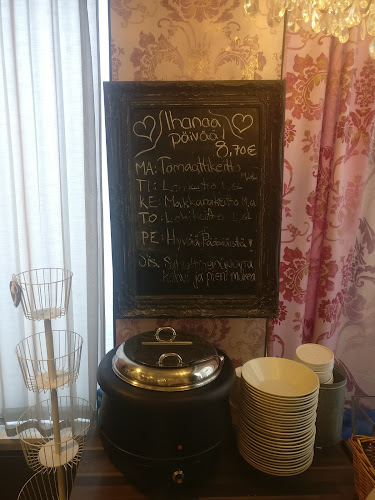 Ihanaa
päivää
8,70€
MA: Tomaattikeitto
TI: L
KE: Makkarakeitto M,L
TO: Lohikeitto L
PE: Hyvää Pääsiäistä!
Sis.
Kahvi ja pieni makea